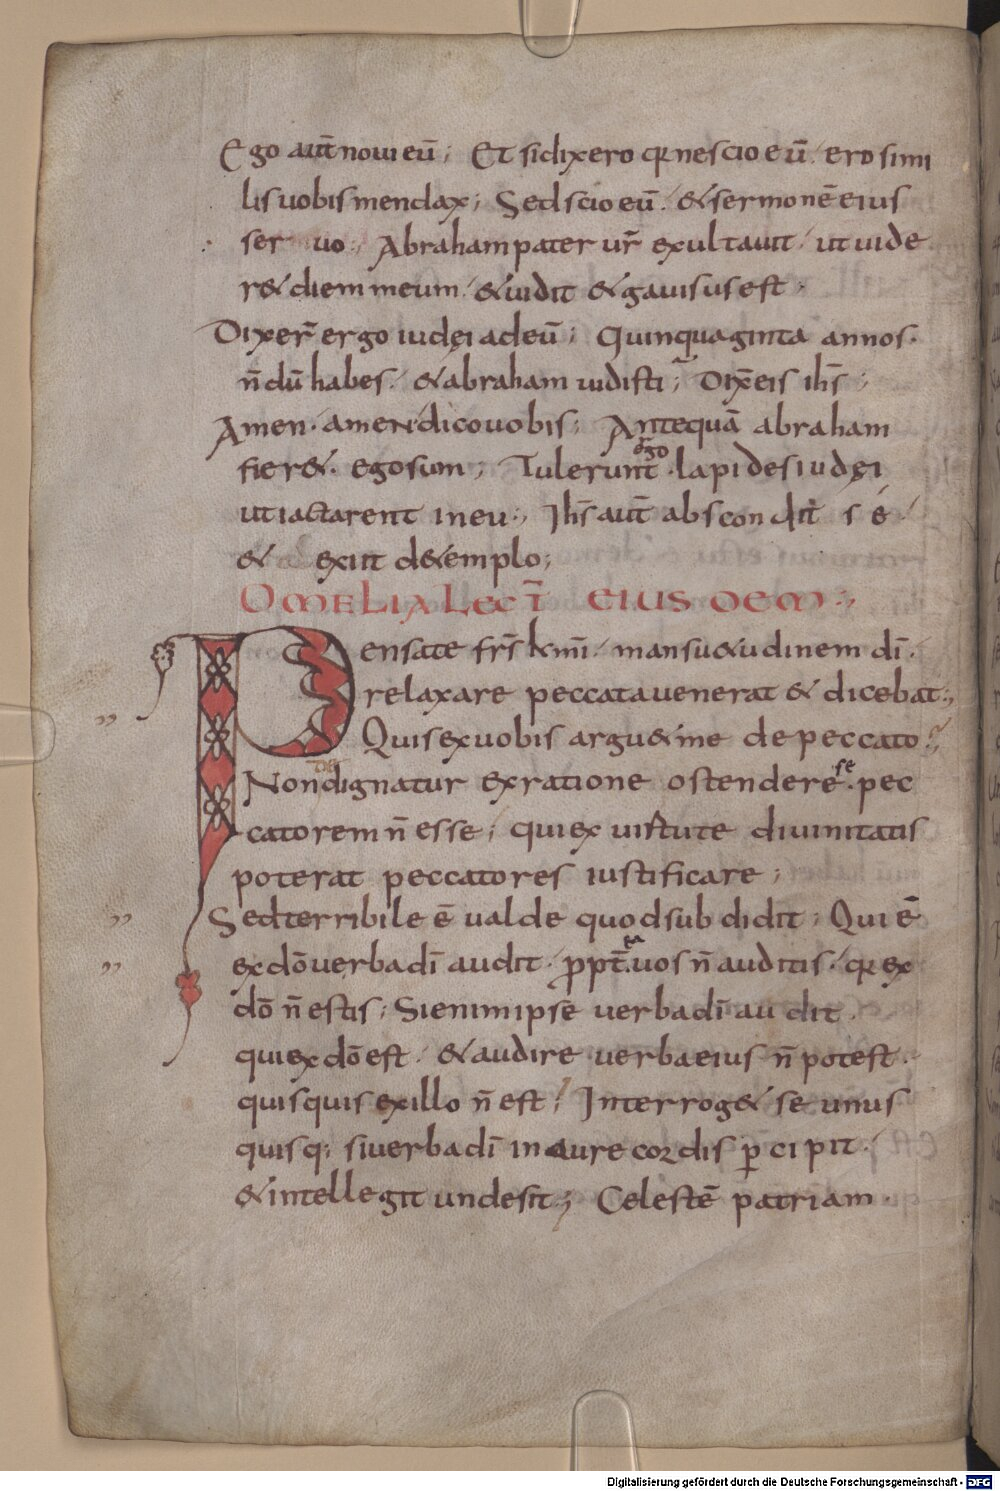 Ego aut̄ noui eū; Et si dixero qr nescio eū. ero simi
lis uobis mendax; Sed scio eū. & sermonē eius
ser uo; Abraham pater ur̄ exultauit ut uide
r& diem meum. & uidit & gauisus est.
Dixer̄ ergo iudęi ad eū; Quinquaginta annos.
n̄dū habes. & abraham uidisti; Dix̄ eis ih̄s;
Amen. amen dico uobis; Antequā abraham
fier&. ego sum; Tulerunt ergo lapides iudęi
ut iactarent in eū; Ih̄s aut̄ abscondit se.
& exiit de templo;
OMELIA LECT̄ EIUSDEM;
Pensate fr̄s k̄mi. mansu&udinem dī.
relaxare peccata uenerat & dicebat;
Quis ex uobis argu& me de peccato
Non dignatur ex ratione ostendere se. pec
catorem n̄ esse; qui ex uirtute diuinitatis
poterat peccatores iustificare;
Sed terribile ē ualde quod subdidit; Qui ē
ex dō uerba dī audit. ppt̄ea uos n̄ auditis. qr ex
dō n̄ estis; Si enim ipse uerba dī audit.
qui ex dō est. & audire uerba eius n̄ potest.
quisquis ex illo n̄ est; Interrog& se unus
quisq; si uerba dī in aure cordis p̱cipit.
& intellegit unde sit; Celestē patriam
Digitalisierung gefördert durch die Deutsche Forschungsgemeinschaft - DFG